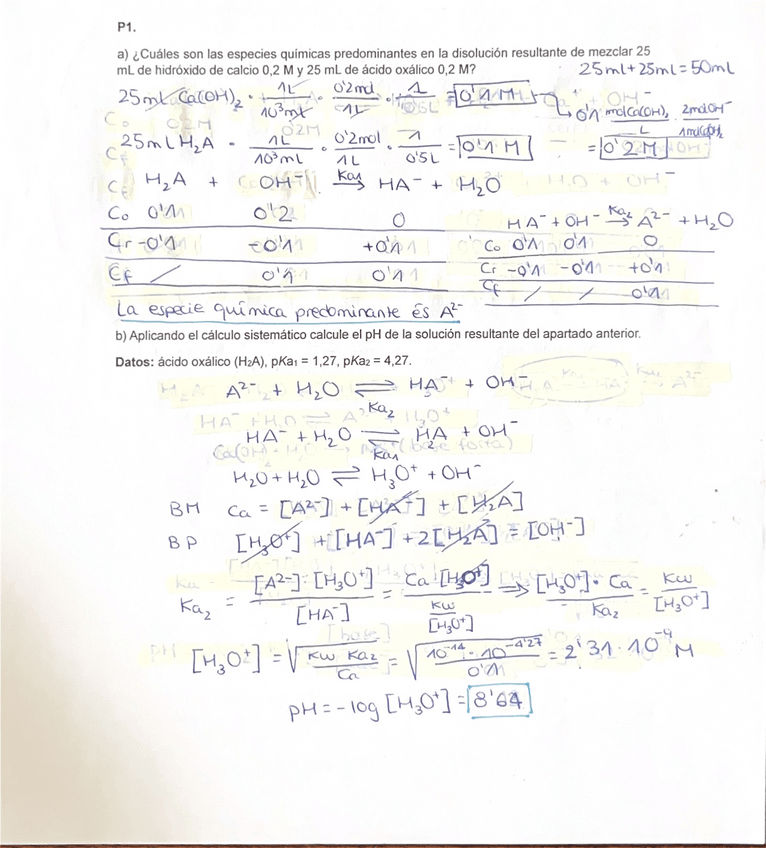 P1.
a) ¿Cuáles son las especies químicas predominantes en la disolución resultante de mezclar 25
mL de hidróxido de calcio 0,2 M y 25 mL de ácido oxálico 0,2 M?
25ml + 25ml = 50mL
25mL Ca(OH)₂ · 1L/10³mL · 0'2mol/1L · 1/0'5L = 0'1 M → 0'1 molCa(OH)₂/L · 2molOH⁻/1molCa(OH)₂
25mL H₂A · 1L/10³mL · 0'2mol/1L · 1/0'5L = 0'1 M = 0'2 M
H₂A + OH⁻ →Ka₁ HA⁻ + H₂O
C₀ 0'1 0'2 0
HA⁻ + OH⁻ →Ka₂ A²⁻ + H₂O
Cr -0'1 -0'1 +0'1
C₀ 0'1 0'1 0
Cf / 0'1 0'1
Cr -0'1 -0'1 +0'1
Cf / / 0'1
La especie química predominante és A²⁻
b) Aplicando el cálculo sistemático calcule el pH de la solución resultante del apartado anterior.
Datos: ácido oxálico (H₂A), pKa₁ = 1,27, pKa₂ = 4,27.
A²⁻ + H₂O ⇌ HA⁻ + OH⁻
Ka₂
HA⁻ + H₂O ⇌ H₂A + OH⁻
Ka₁
H₂O + H₂O ⇌ H₃O⁺ + OH⁻
BM Ca = [A²⁻] + [HA⁻] + [H₂A]
BP [H₃O⁺] + [HA⁻] + 2[H₂A] = [OH⁻]
Ka₂ = [A²⁻]·[H₃O⁺]/[HA⁻] = Ca [H₃O⁺]/(Kw/[H₃O⁺]) ⇒ [H₃O⁺]·Ca/Ka₂ = Kw/[H₃O⁺]
[H₃O⁺] = √(Kw Ka₂/Ca) = √(10⁻¹⁴·10⁻⁴'²⁷/0'1) = 2'31·10⁻⁹ M
pH = -log [H₃O⁺] = 8'64